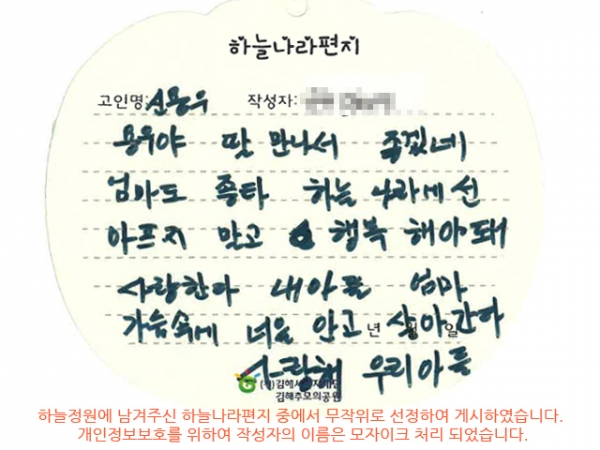 하늘나라편지
고인명: 신용우 작성자:
용우야 만나서 좋겠네
엄마도 좋타 하늘 나라에선
아프지 말고 행복 해야돼
사랑한다 내아들 엄마
가슴속에 너을 안고 년 살아간다 일
사랑해 우리아들
김해추모의공원
하늘정원에 남겨주신 하늘나라편지 중에서 무작위로 선정하여 게시하였습니다.
개인정보보호를 위하여 작성자의 이름은 모자이크 처리 되었습니다.